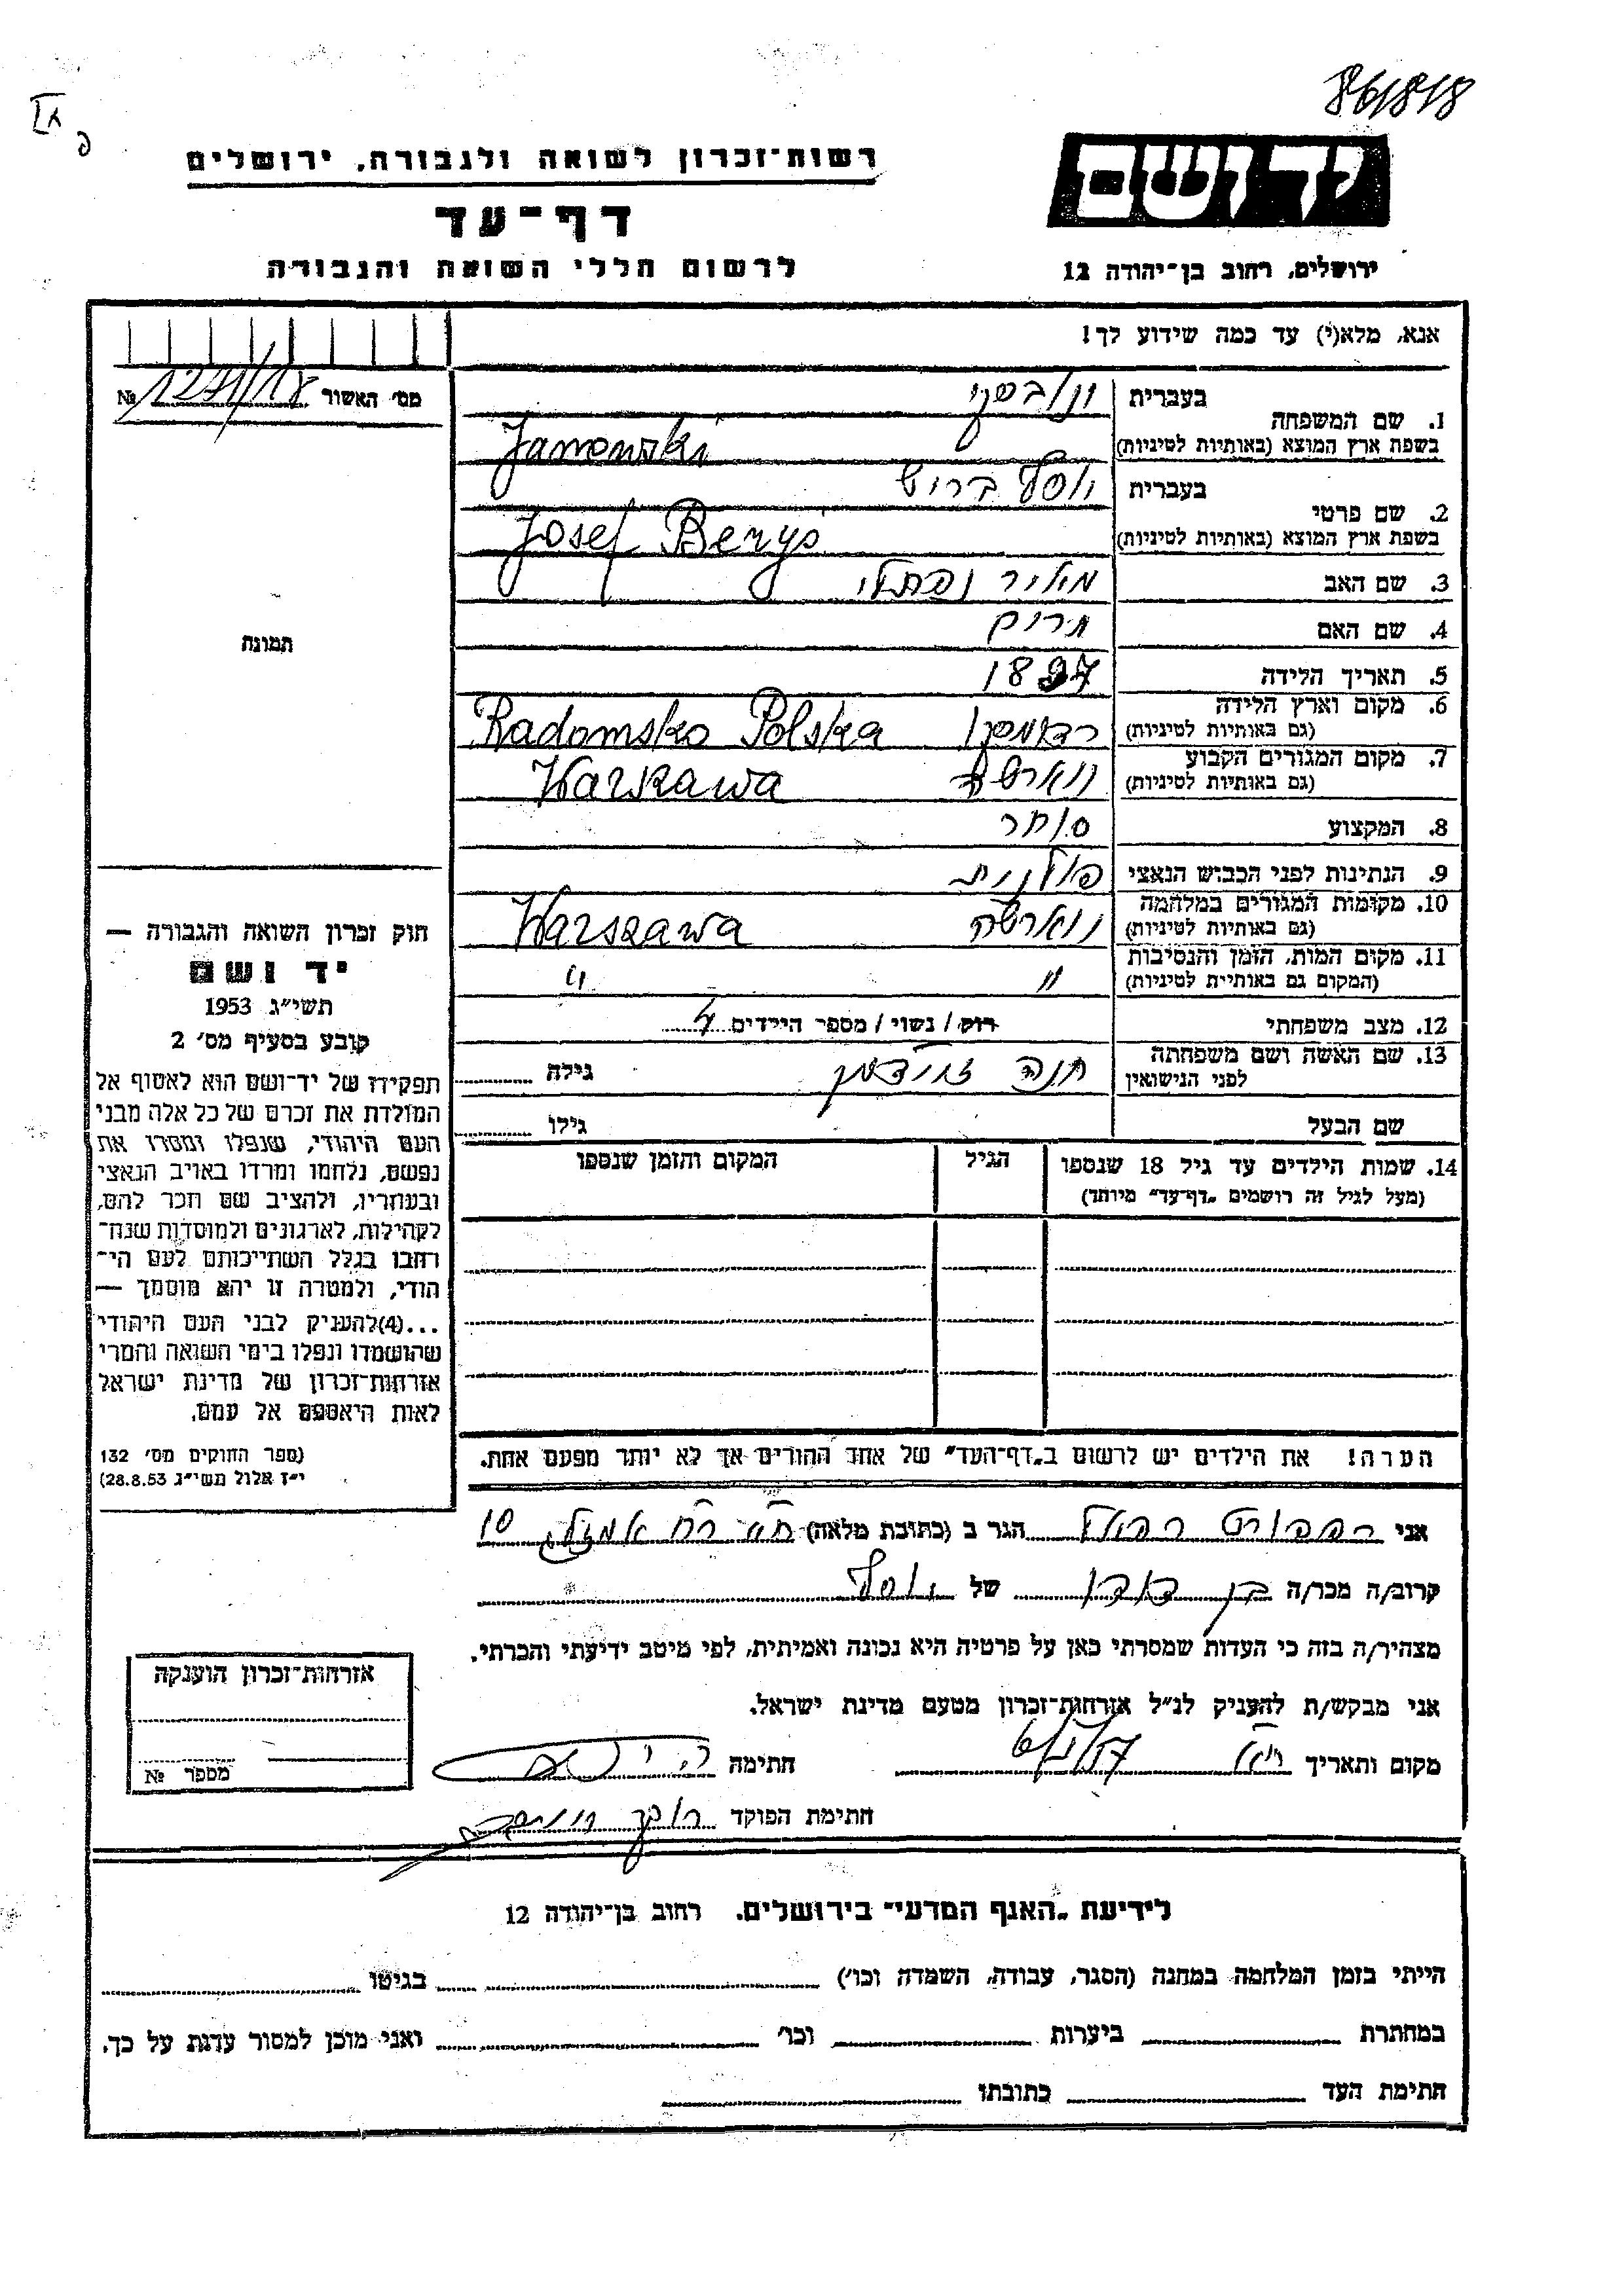 861818
רשות־זכרון לשואה ולגבורה, ירושלים
יד ושם
דף־עד
לרשום חללי השואה והגבורה
ירושלים, רחוב בן־יהודה 12
אנא, מלא(י) עד כמה שידוע לך!
מס׳ האשור №
1. שם המשפחה
בעברית ינובסקי
בשפת ארץ המוצא (באותיות לטיניות) Janowski
2. שם פרטי
בעברית יוסף בריש
בשפת ארץ המוצא (באותיות לטיניות) Josef Berys
3. שם האב מאיר נפתלי
4. שם האם
5. תאריך הלידה 1897
6. מקום וארץ הלידה
(גם באותיות לטיניות) רדומסקו Radomsko Polska
7. מקום המגורים הקבוע
(גם באותיות לטיניות) ווארשה Warszawa
8. המקצוע סוחר
9. הנתינות לפני הכבוש הנאצי פולנית
10. מקומות המגורים במלחמה
(גם באותיות לטיניות) ווארשה Warszawa
11. מקום המות, הזמן והנסיבות
(המקום גם באותיות לטיניות) " "
12. מצב משפחתי רוק/ נשוי/ מספר הילדים 4
13. שם האשה ושם משפחתה
לפני הנישואין חנה גילה
שם הבעל גילו
14. שמות הילדים עד גיל 18 שנספו
(מעל לגיל זה רושמים „דף־עד״ מיוחד)
הגיל
המקום והזמן שנספו
תמונה
חוק זכרון השואה והגבורה —
יד ושם
תשי״ג 1953
קובע בסעיף מס׳ 2
תפקידו של יד־ושם הוא לאסוף אל
המולדת את זכרם של כל אלה מבני
העם היהודי, שנפלו ומסרו את
נפשם, נלחמו ומרדו באויב הנאצי
ובעוזריו, ולהציב שם וזכר להם,
לקהילות, לארגונים ולמוסדות שנח־
רבו בגלל השתייכותם לעם הי־
הודי, ולמטרה זו יהא מוסמך —
...(4)להעניק לבני העם היהודי
שהושמדו ונפלו בימי השואה והמרי
אזרחות־זכרון של מדינת ישראל
לאות היאספם אל עמם.
(ספר החוקים מס׳ 132
י״ז אלול תשי״ג 28.8.53)
הערה! את הילדים יש לרשום ב„דף־העד״ של אחד ההורים אך לא יותר מפעם אחת.
אני הגר ב (כתובת מלאה) 10
קרוב/ה מכר/ה בן דודו של יוסף
מצהיר/ה בזה כי העדות שמסרתי כאן על פרטיה היא נכונה ואמיתית, לפי מיטב ידיעתי והכרתי.
אני מבקש/ת להעניק לנ״ל אזרחות־זכרון מטעם מדינת ישראל.
מקום ותאריך חתימה
חתימת הפוקד
אזרחות־זכרון הוענקה
מספר №
לידיעת „האגף המדעי״ בירושלים, רחוב בן־יהודה 12
הייתי בזמן המלחמה במחנה (הסגר, עבודה, השמדה וכו׳) בגיטו
במחתרת ביערות וכו׳ ואני מוכן למסור עדות על כך.
חתימת העד כתובתו